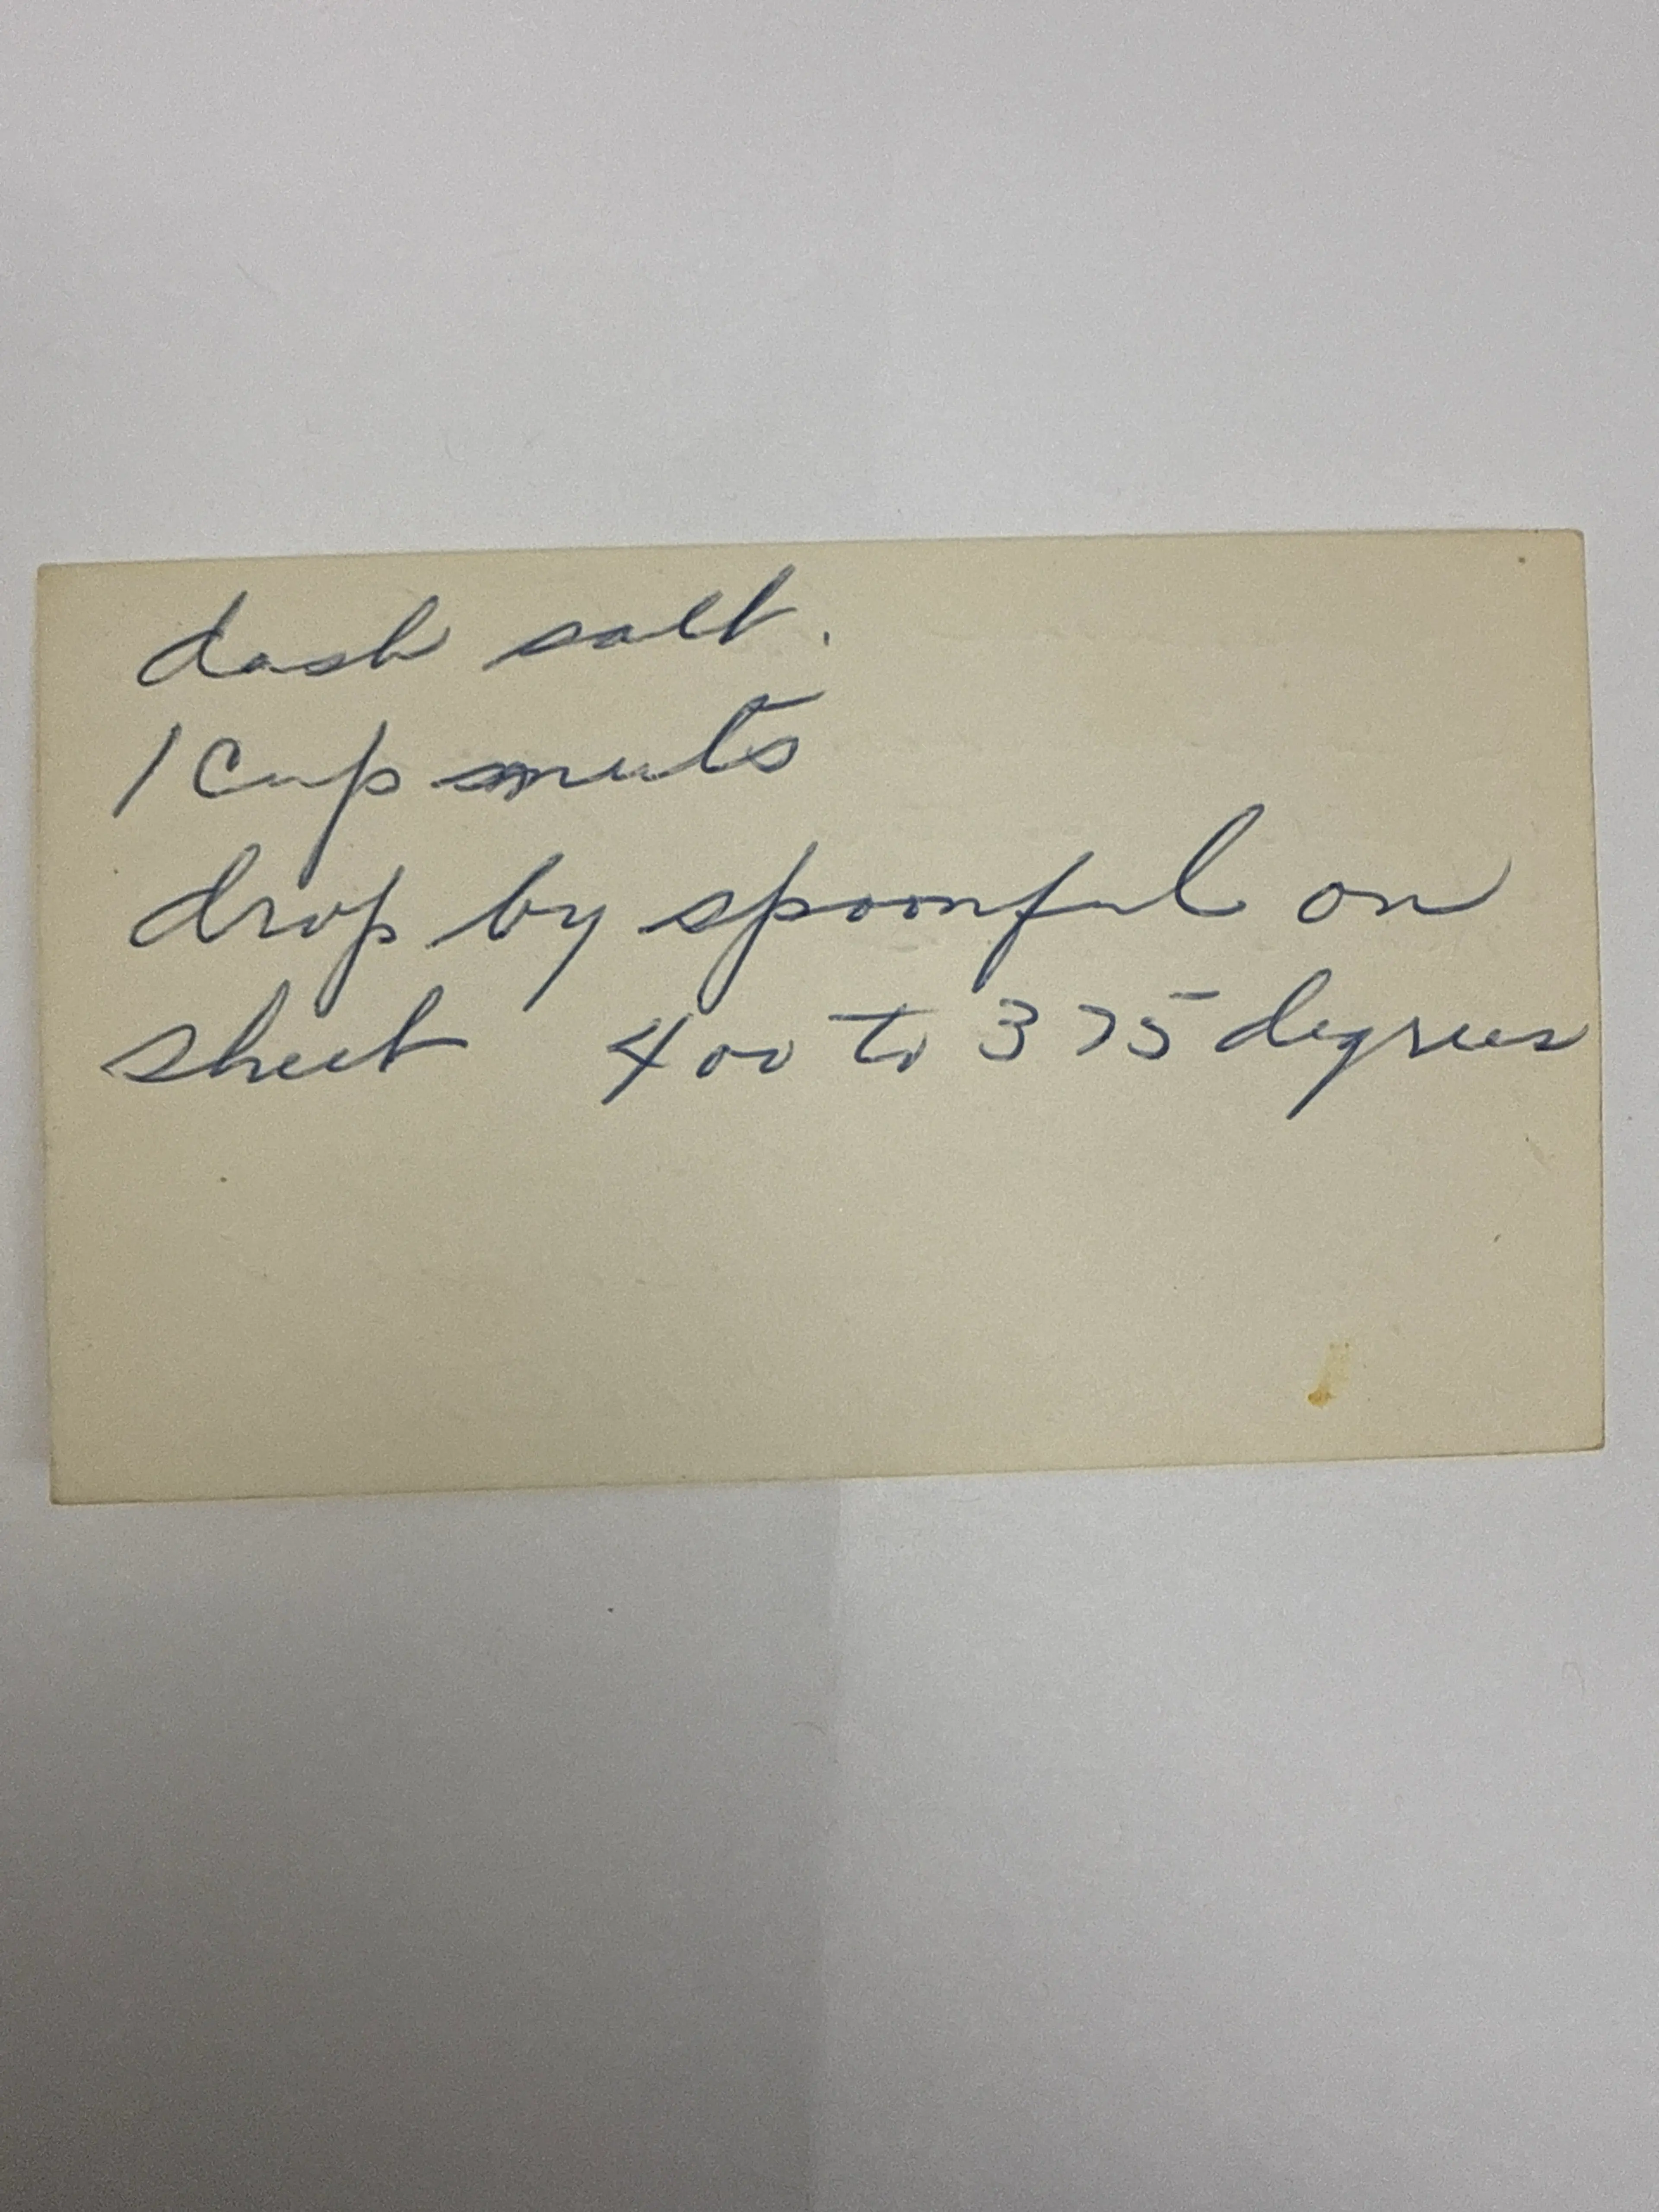 dash salt.
1 cup nuts
drop by spoonful on
sheet 400 to 375 degrees